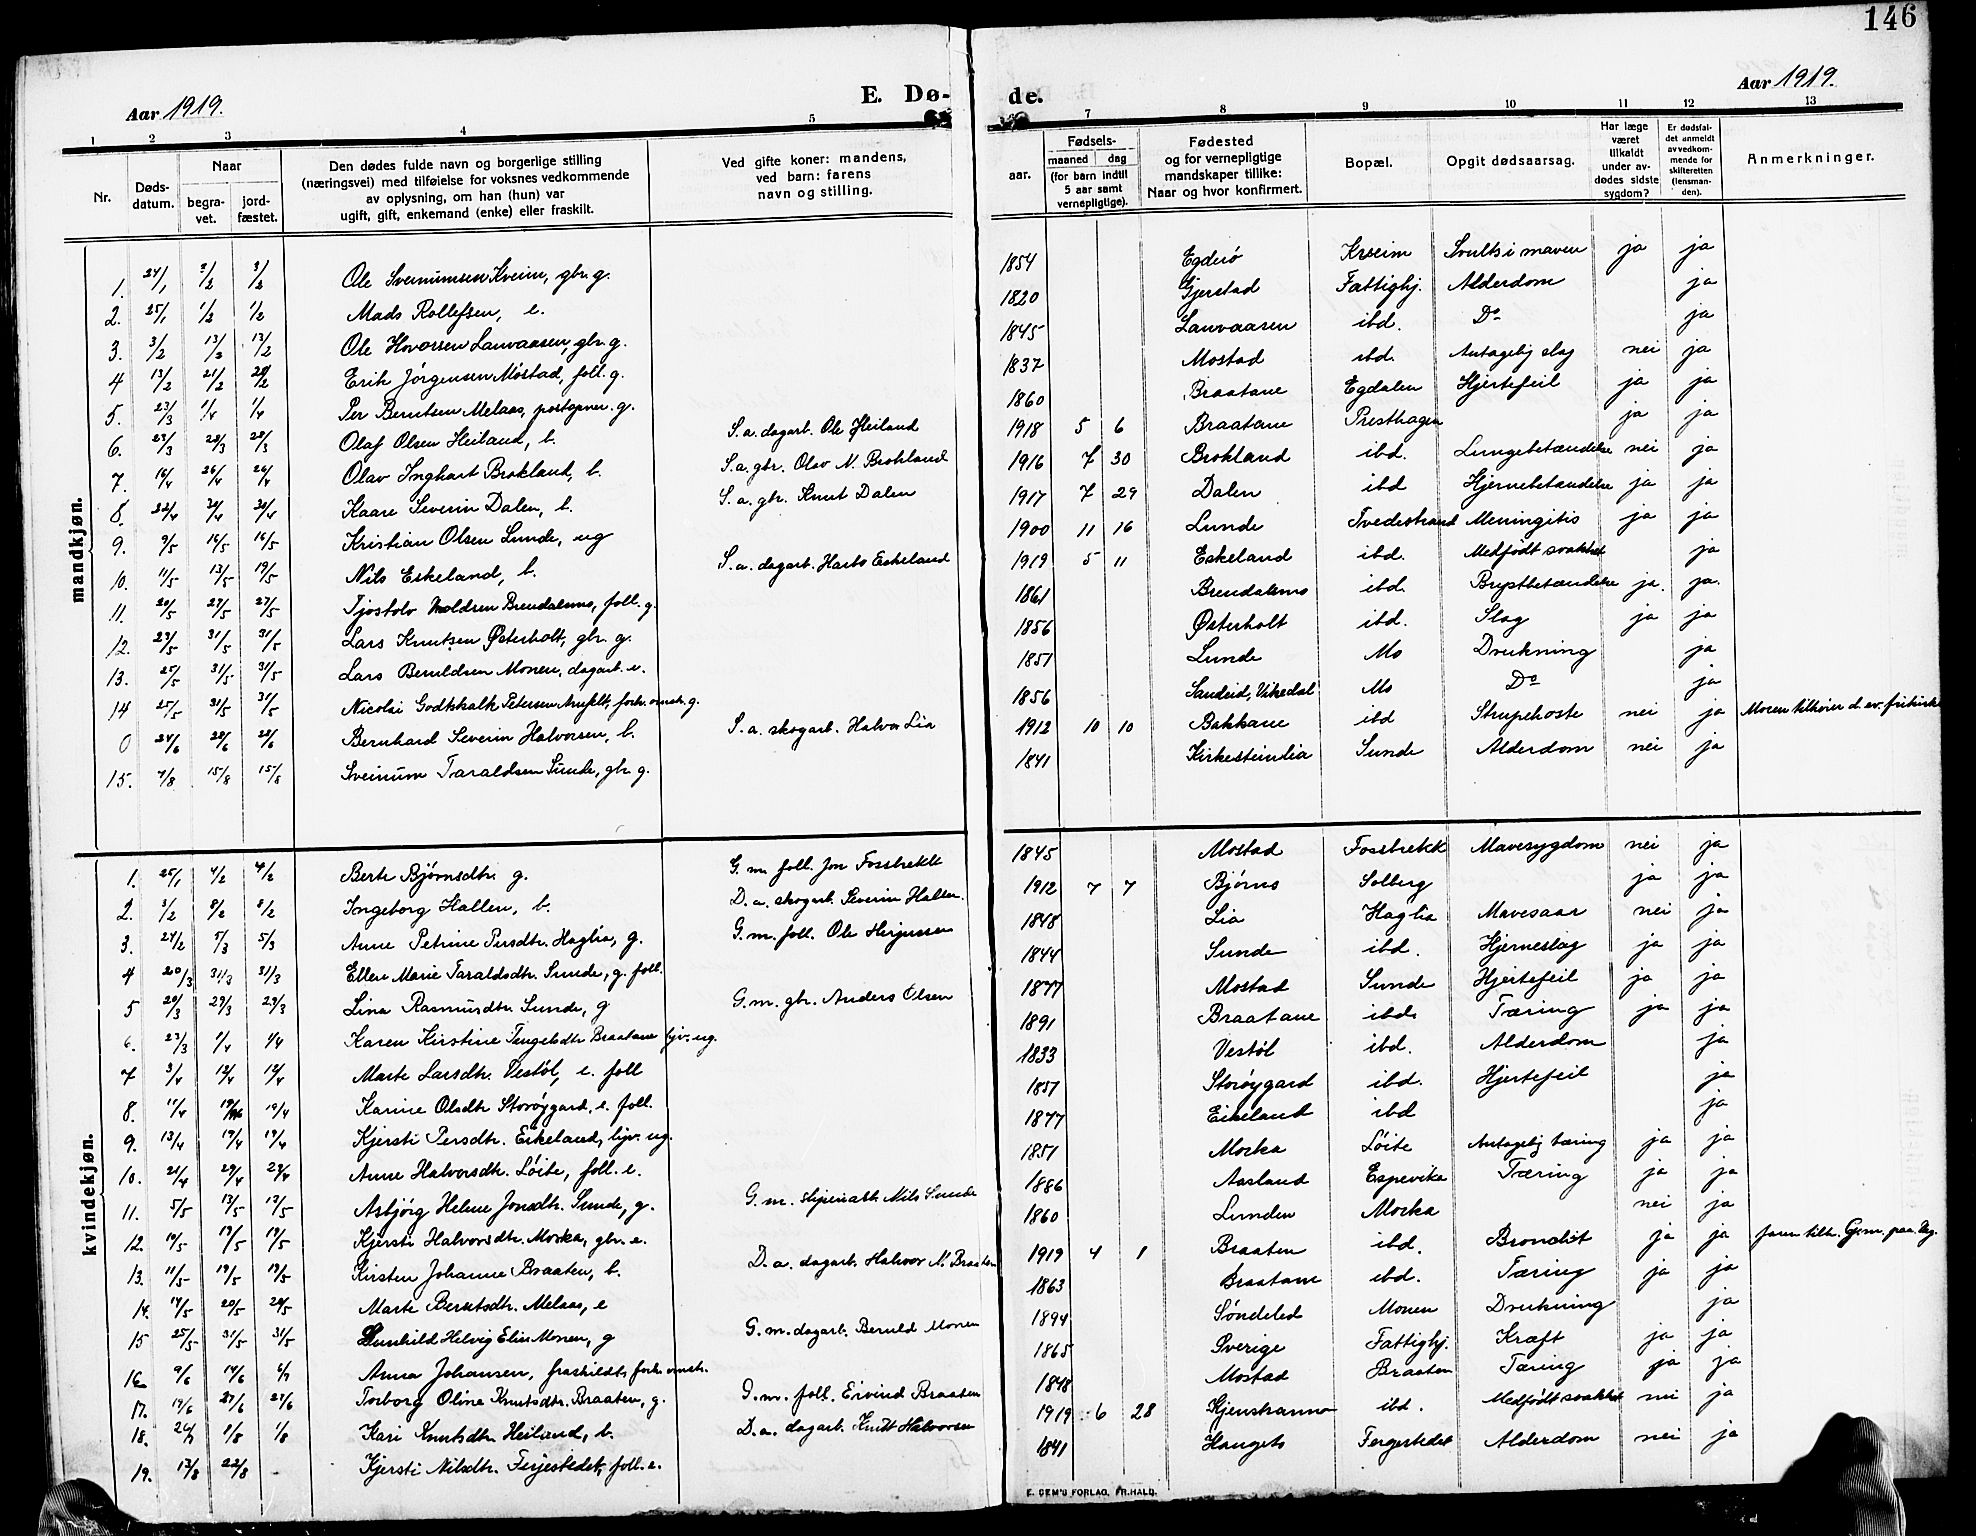 146
Aar 1919.
E. Dø-
de.
Aar 1919.
1 2 3 4 5 7 8 9 10 11 12 13
Nr.
Døds-
datum.
Naar
begra-
vet.
jord-
fæstet.
Den dødes fulde navn og borgerlige stilling
(næringsvei) med tilføielse for voksnes vedkommende
av oplysning, om han (hun) var
ugift, gift, enkemand (enke) eller fraskilt.
Ved gifte koner: mandens,
ved barn: farens
navn og stilling.
Fødsels-
aar.
maaned dag
(for barn indtil
5 aar samt
vernepligtige).
Fødested
og for vernepligtige
mandskaper tillike:
Naar og hvor konfirmert.
Bopæl.
Opgit dødsaarsag.
Har læge
været
tilkaldt
under av-
dødes sidste
sygdom?
Er dødsfal-
det anmeldt
av vedkom-
mende for
skifteretten
(lensman-
den).
Anmerkninger.
mandkjøn.
1. 24/1 2/2 2/2 Ole Sveinumsen Kveim, gbr. g. 1854 Egdeiö Kveim Svults i maven ja ja
2. 25/1 1/2 1/2 Mads Rollefsen, e. 1820 Gjerstad Fattighj. Alderdom ja
3. 3/2 13/2 13/2 Ole Hovorsen Lauvaasen, gbr. g. 1845 Lauvaasen ibd. Do ja
4 13/2 21/2 Erik Jörgensen Mostad, foll. g. 1837 Mostad ibd. Antagelig slag nei ja
5. 23/3 1/4 1/4 Per Berntsen Melaas, postopner. g. 1860 Braatane Egdalen Hjertefeil ja ja
6. 23/3 28/3 28/3 Olaf Olsen Heiland, b. S. a. dagarb. Ole Heiland 1918 5 6 Braatane Presthagen ja ja
7. 16/4 26/4 26/4 Olav Inghart Brokland, b. S. a. gbr. Olav N. Brokland 1916 7 30 Brokland ibd. Lungebetændelse nei ja
8. 22/4 30/4 30/4 Kaare Severin Dalen, b. S. a. gbr. Knut Dalen 1917 7 29 Dalen ibd Hjernebetændelse ja ja
9. 9/5 16/5 16/5 Kristian Olsen Lunde, ug 1900 11 16 Lunde Tvedestrand Meningitis ja ja
10. 11/5 13/5 19/5 Nils Eskeland, b. S. a. dagarb. Eskeland 1919 5 11 Eskeland ibd. Medfödt svakhet ja
11. 20/5 27/5 27/5 Tjostolv Brendalsmo, foll. g. 1861 Brendalsmo ibd. Brystbetændelse ja. ja.
12. 23/5 31/5 31/5 Lars Knutsen Østerholt, gbr. g. 1856 Østerholt ibd. Slag ja ja
13. 25/5 31/5 31/5 Lars Beruldsen Monen, dagarb. e. 1851 Lunde Mo Drukning ja
14 25/5 31/5 31/5 Nicolai Godtskalk Petersen forh. omstr. g. 1856 Sandeid, Vikedal Mo Do ja
0 24/6 28/6 28/6 Bernhard Severin Halvorsen, b. S. a. skogarb. Halvor Lia 1912 10 10 Bakkane ibd Strupehoste nei ja Moren tilhører d. ev. frikirke
15. 7/8 15/8 15/8 Sveinum Taraldsen Sunde, gbr g. 1841 Kirkesteinlia Sunde Alderdom nei ja
kvindekjøn.
1. 25/1 4/2 4/2 Berte Bjørnsdtr. g. G. m. foll. Jon Fosstrekk 1845 Mostad Fosstrekk Mavesygdom nei ja
2. 3/2 8/2 8/2 Ingeborg Hallen, b. D. a. skogarb. Severin Hallen. 1912 7 7 Bjórns Solberg ja ja
3. 24/2 5/3 5/3 Anne Petrine Persdtr. Haglia, g. G. m. foll. Ole Herjussen 1848 Lia Haglia Mavesaar nei ja
4 20/3 31/3 31/3 Ellen Marie Taraldsdtr. Sunde, g. foll. 1844 Sunde ibd. Hjerneslag ja ja
5 20/3 29/3 29/3 Lina Rasmusdtr. Sunde, g G. m. gbr. Anders Olsen 1877 Mostad Sunde Hjertefeil ja ja
6. 23/3 1/4 1/4 Karen Kirstine Tengelsdtr Braatane tjv. ug. 1891 Braatane ibd. Tæring ja ja
7 3/4 12/4 12/4 Marte Larsdtr. Vestöl, e. foll 1833 Vestöl ibd. Alderdom ja
8. 11/4 19/4 19/4 Karine Olsdtr Storöygard, e. foll. 1857 Storöygard ibd. Hjertefeil ja
9. 13/4 19/4 19/4 Kjersti Persdtr. Eskeland, tjv. ug. 1877 Eskeland ibd ja
10. 21/4 29/4 29/4 Anne Halvorsdtr. Löite, foll. e. 1851 Morka Löite Antagelig tæring ja ja
11. 5/5 13/5 13/5 Asbjörg Helene Jonsdtr. Sunde, g. G. m. Nils Sunde 1886 Aasland Espevika Tæring ja ja
12. 10/5 19/5 19/5 Kjersti Halvorsdtr. Morka, gbr. e. 1860 Lunden Morka nei ja
13. 11/5 19/5 19/5 Kirsten Johanne Braaten, b. D. a. dagarb. Halvor N. Braaten 1919 4 1 Braaten ibd. Bronchit ja ja faren tilh.
14. 14/5 20/5 20/5 Marte Berntsdtr. Melaas, e 1863 Braatane ibd. Tæring ja ja
15 25/5 31/5 31/5 Gunhild Helvig Elin Monen, g G. m. dagarb. Beruld Monen 1894 Söndeled Monen Drukning ja
16 9/6 14/6 Anna Johansen, fraskildt, forh. omstr. 1865 Sverige Fattighj. Kræft ja ja
17. 19/6 27/6 27/6 Torborg Oline Knutsdtr. Braaten, g. G. m. foll. Eivind Braaten 1848 Mostad Braaten Tæring ja ja
18. 1/8 1/8 Kari Knutsdtr Heiland, b. D. a. dagarb. Knut Halvorsen 1919 6 28 ibd. Medfödt svakhet nei ja
19. 13/8 22/8 - Kjersti Nilsdtr. Ferjestedet, foll. e. 1841 Haugets Fergestedet Alderdom nei ja
E. SEM'S FORLAG, FR.HALD.